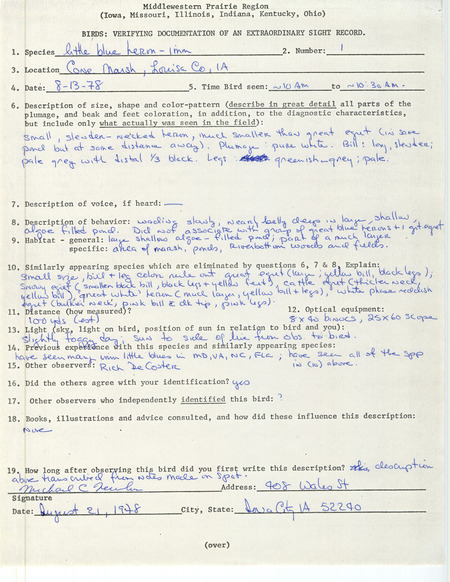 Middlewestern Prairie Region
(Iowa, Missouri, Illinois, Indiana, Kentucky, Ohio)
BIRDS: VERIFYING DOCUMENTATION OF AN EXTRAORDINARY SIGHT RECORD.
1. Species little blue heron - imm 2. Number: 1
3. Location Cone Marsh, Louisa Co, IA
4. Date: 8-13-78 5. Time Bird seen: ~10 AM to ~10:30 AM.
6. Description of size, shape and color-pattern (describe in great detail all parts of the
plumage, and beak and feet coloration, in addition, to the diagnostic characteristics,
but include only what actually was seen in the field):
Small, slender-necked heron, much smaller than great egret (in same
pond but at some distance away). Plumage: pure white. Bill: long, slender;
pale grey with distal 1/3 black. Legs greenish-grey; pale.
7. Description of voice, if heard: —
8. Description of behavior: wading slowly, nearly belly deep in large, shallow,
algae filled pond. Did not associate with group of great blue herons + 1 gt egret
9. Habitat - general: large shallow algae-filled pond; part of a much larger
specific: area of marsh, ponds, riverbottom woods and fields.
10. Similarly appearing species which are eliminated by questions 6, 7 & 8, Explain:
Small size, bill + leg color rule out great egret (large; yellow bill, black legs);
Snowy egret (smaller black bill, black legs + yellow feet), cattle egret (thicker neck,
yellow bill), "great white" heron (much larger, yellow bill + legs), white phase reddish
egret (bulkier neck, pink bill & dk tip, pink legs).
11. Distance (how measured)? 12. Optical equipment:
100 yds (est) 8 x 40 binocs, 25x60 scope
13. Light (sky, light on bird, position of sun in relation to bird and you):
Slightly foggy day, sun to side of line from obs. to bird.
14. Previous experience with this species and similarly appearing species:
have seen many imm little blues in MD, VA, NC, FLA; have seen all of the spp
in (10) above.
15. Other observers: Rich De Coster
16. Did the others agree with your identification? yes
17. Other observers who independently identified this bird: ?
18. Books, illustrations and advice consulted, and how did these influence this description:
None
19. How long after observing this bird did you first write this description? this description
above transcribed from notes made on spot.
Michael C Newlon Address: 408 Wales St
Signature
Date: August 21, 1978 City, State: Iowa City IA 52240
(over)